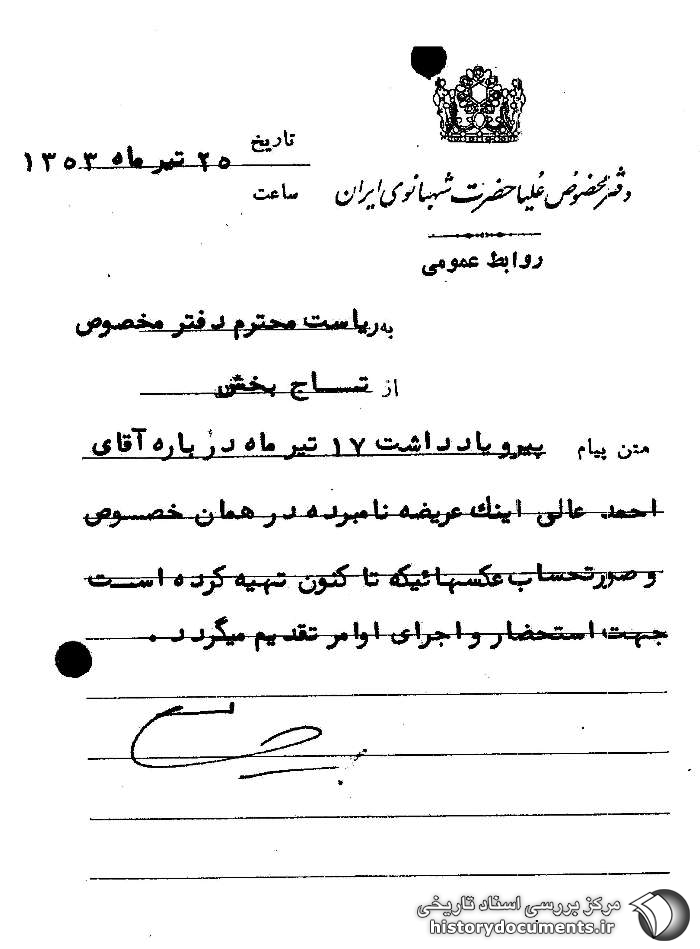 تاریخ ۲۵ تیر ماه ۱۳۵۳
ساعت
دفتر مخصوص علیاحضرت شهبانوی ایران
روابط عمومی
به ریاست محترم دفتر مخصوص
از تاج بخش
متن پیام پیرو یادداشت ۱۷ تیر ماه درباره آقای
احمد عالی اینک عریضه نامبرده در همان خصوص
و صورتحساب عکسهائیکه تا کنون تهیه کرده است
جهت استحضار و اجرای اوامر تقدیم میگردد .
مرکز بررسی اسناد تاریخی
historydocuments.ir